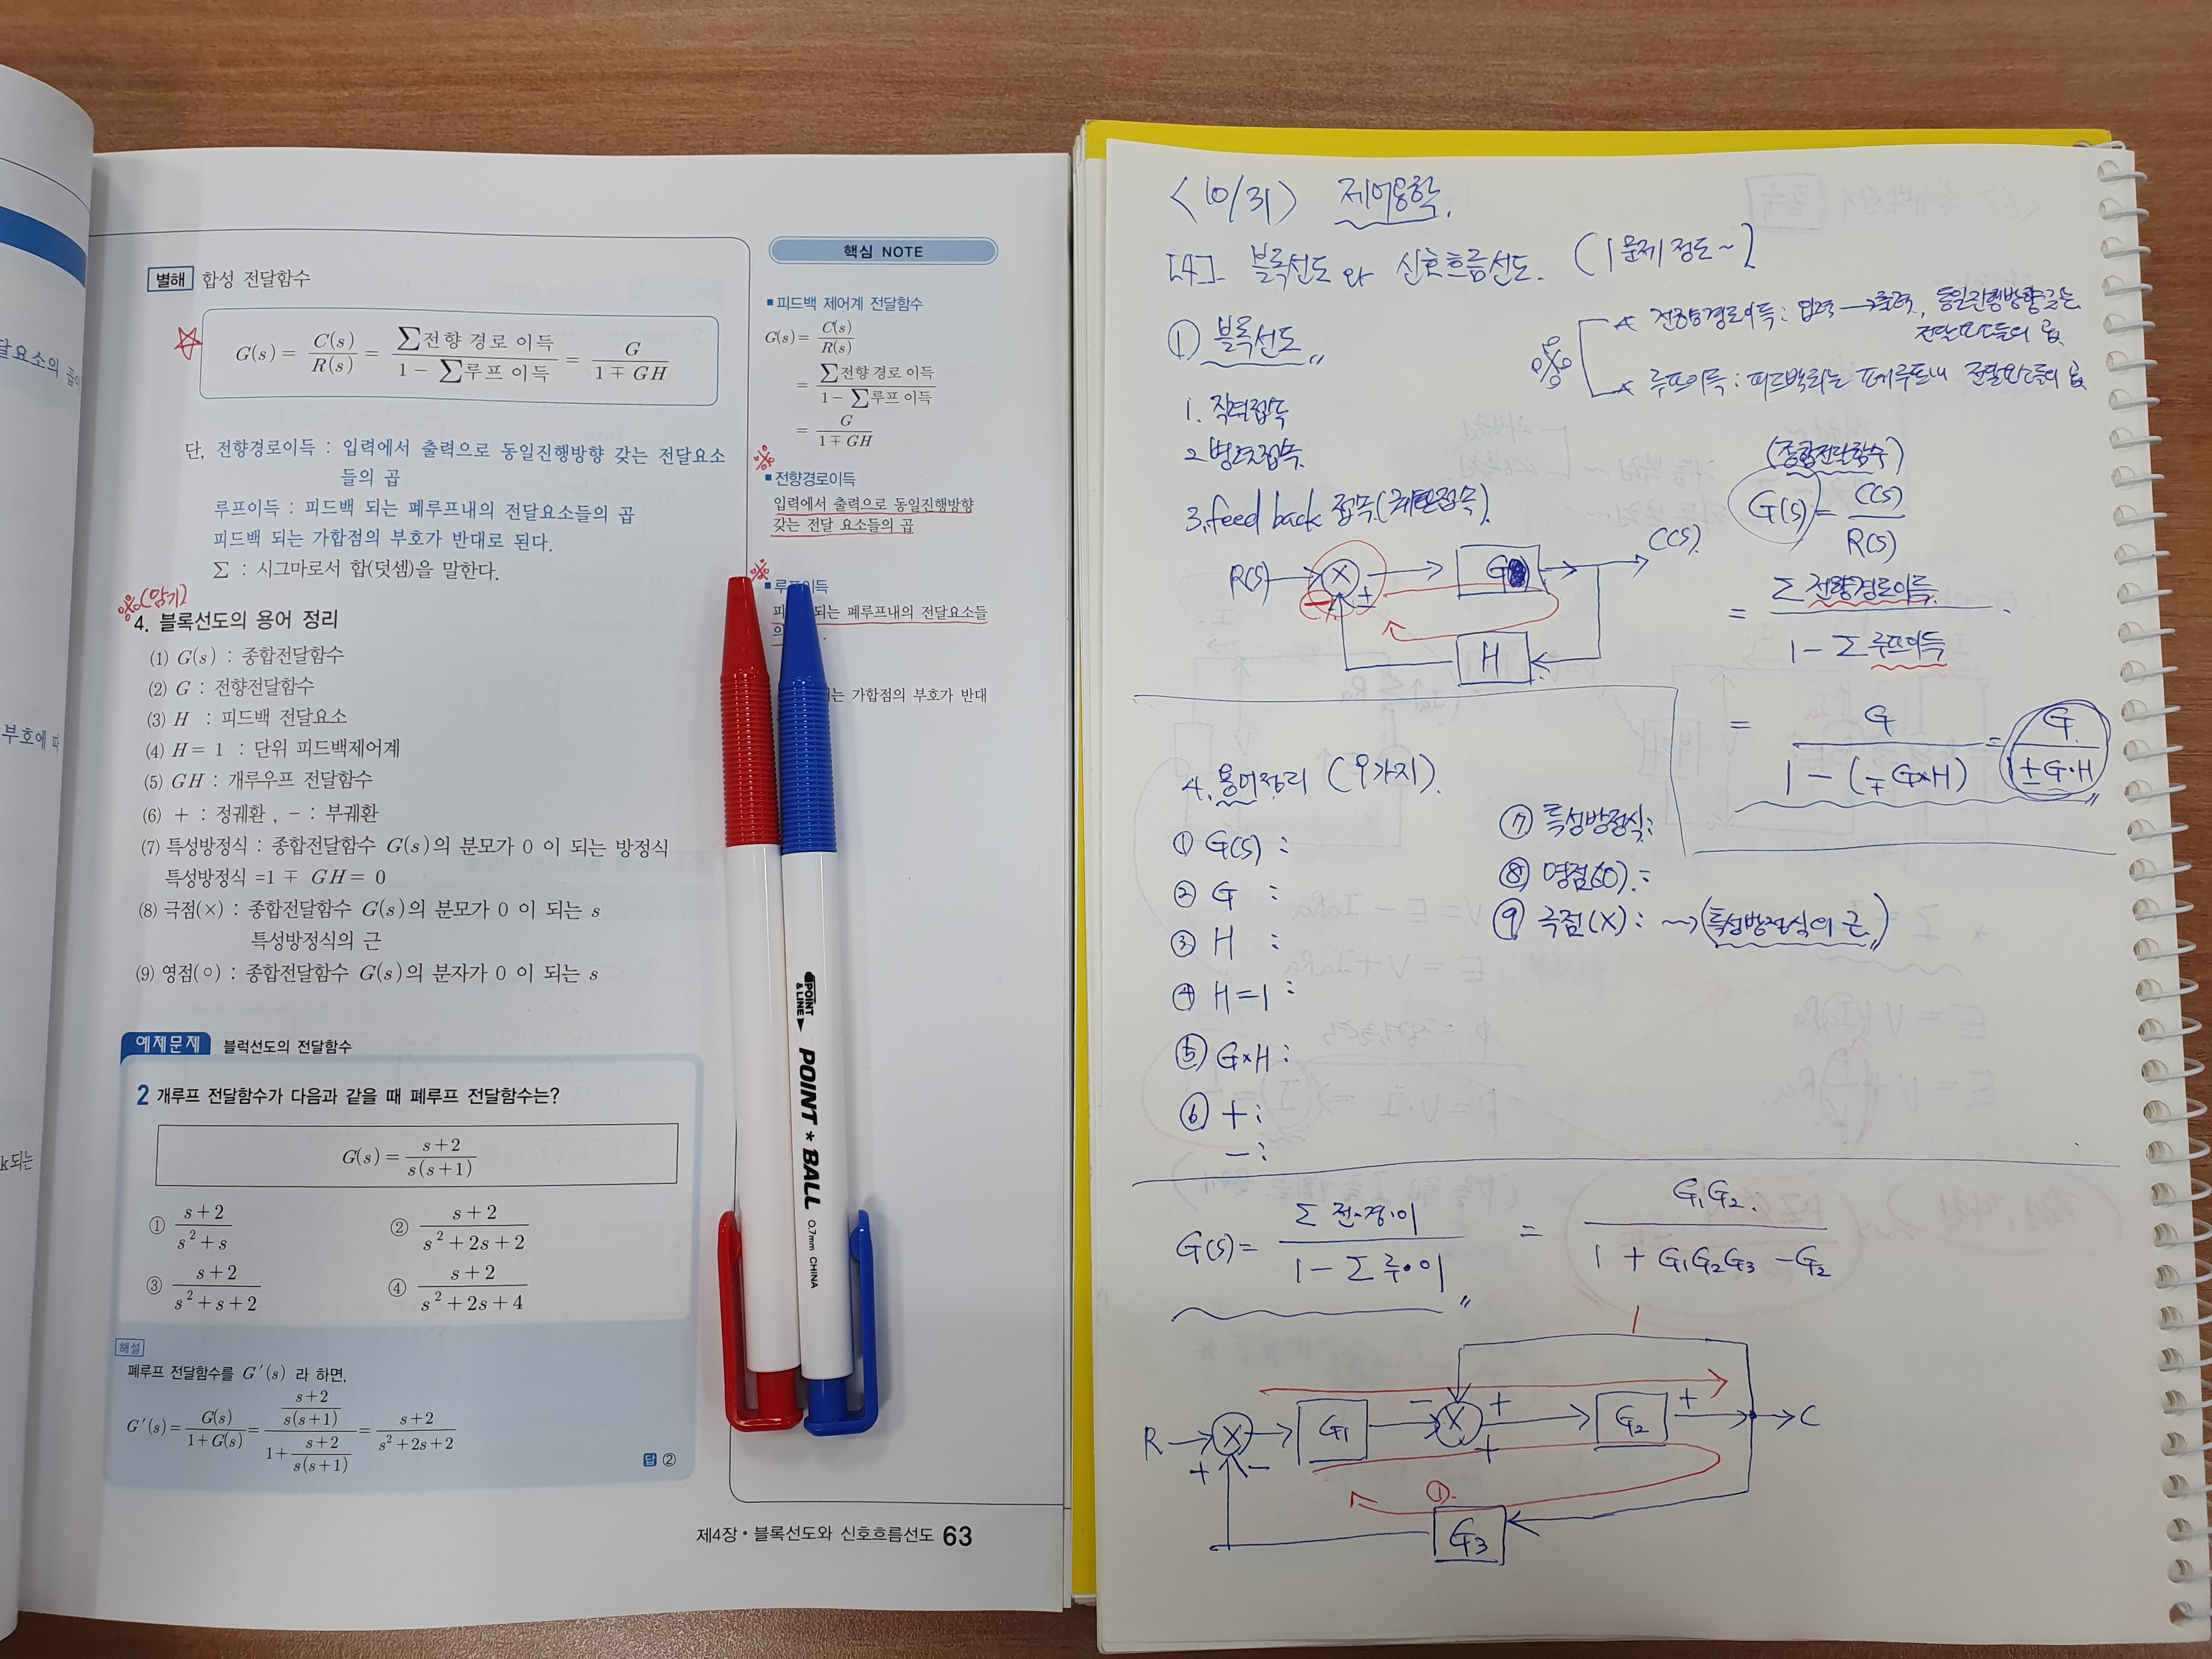 달요소의 곱
부호에 따
k되는
별해 합성 전달함수
G(s) = C(s)/R(s) = ∑전향 경로 이득/(1 - ∑루프 이득) = G/(1 ∓ GH)
단, 전향경로이득 : 입력에서 출력으로 동일진행방향 갖는 전달요소
들의 곱
루프이득 : 피드백 되는 폐루프내의 전달요소들의 곱
피드백 되는 가합점의 부호가 반대로 된다.
Σ : 시그마로서 합(덧셈)을 말한다.
(암기)
4. 블록선도의 용어 정리
(1) G(s) : 종합전달함수
(2) G : 전향전달함수
(3) H : 피드백 전달요소
(4) H = 1 : 단위 피드백제어계
(5) GH : 개루우프 전달함수
(6) + : 정궤환 , - : 부궤환
(7) 특성방정식 : 종합전달함수 G(s)의 분모가 0 이 되는 방정식
특성방정식 =1 ∓ GH = 0
(8) 극점(×) : 종합전달함수 G(s)의 분모가 0 이 되는 s
특성방정식의 근
(9) 영점(○) : 종합전달함수 G(s)의 분자가 0 이 되는 s
예제문제 블럭선도의 전달함수
2 개루프 전달함수가 다음과 같을 때 폐루프 전달함수는?
G(s) = (s+2)/(s(s+1))
① (s+2)/(s²+s) ② (s+2)/(s²+2s+2)
③ (s+2)/(s²+s+2) ④ (s+2)/(s²+2s+4)
해설
폐루프 전달함수를 G′(s) 라 하면,
G′(s) = G(s)/(1+G(s)) = ((s+2)/(s(s+1)))/(1+(s+2)/(s(s+1))) = (s+2)/(s²+2s+2)
답 ②
핵심 NOTE
■ 피드백 제어계 전달함수
G(s) = C(s)/R(s)
= ∑전향 경로 이득/(1 - ∑루프 이득)
= G/(1∓GH)
■ 전향경로이득
입력에서 출력으로 동일진행방향
갖는 전달 요소들의 곱
■ 루프이득
되는 폐루프내의 전달요소들
는 가합점의 부호가 반대
제4장 • 블록선도와 신호흐름선도 63
POINT & LINE
POINT * BALL 0.7mm CHINA
<10/31> 제어공학.
[4]. 블록선도 와 신호흐름선도. (1문제 정도~)
① 블록선도
전향경로이득 : 입력→출력, 동일진행방향 갖는
전달요소들의 곱
루프이득 : 피드백되는 폐루프내 전달요소들의 곱
1. 직렬접속
2. 병렬접속
3. feed back 접속( 접속).
R(s) × ± − G C(s).
H
(종합전달함수)
G(s) = C(s)/R(s)
= Σ전향경로이득/(1 - Σ루프이득)
= G/(1 - (∓G×H)) = G/(1±G·H)
4. 용어정리 (9가지).
① G(s) :
② G :
③ H :
④ H=1 :
⑤ G×H :
⑥ + :
− :
⑦ 특성방정식:
⑧ 영점(O).:
⑨ 극점(X) : ~→(특성방정식의 근)
G(s) = Σ 전·경·이/(1 - Σ 루·이) = G₁G₂./(1 + G₁G₂G₃ - G₂)
1
R × G₁ − × + G₂ + C
+ − +
①.
G₃